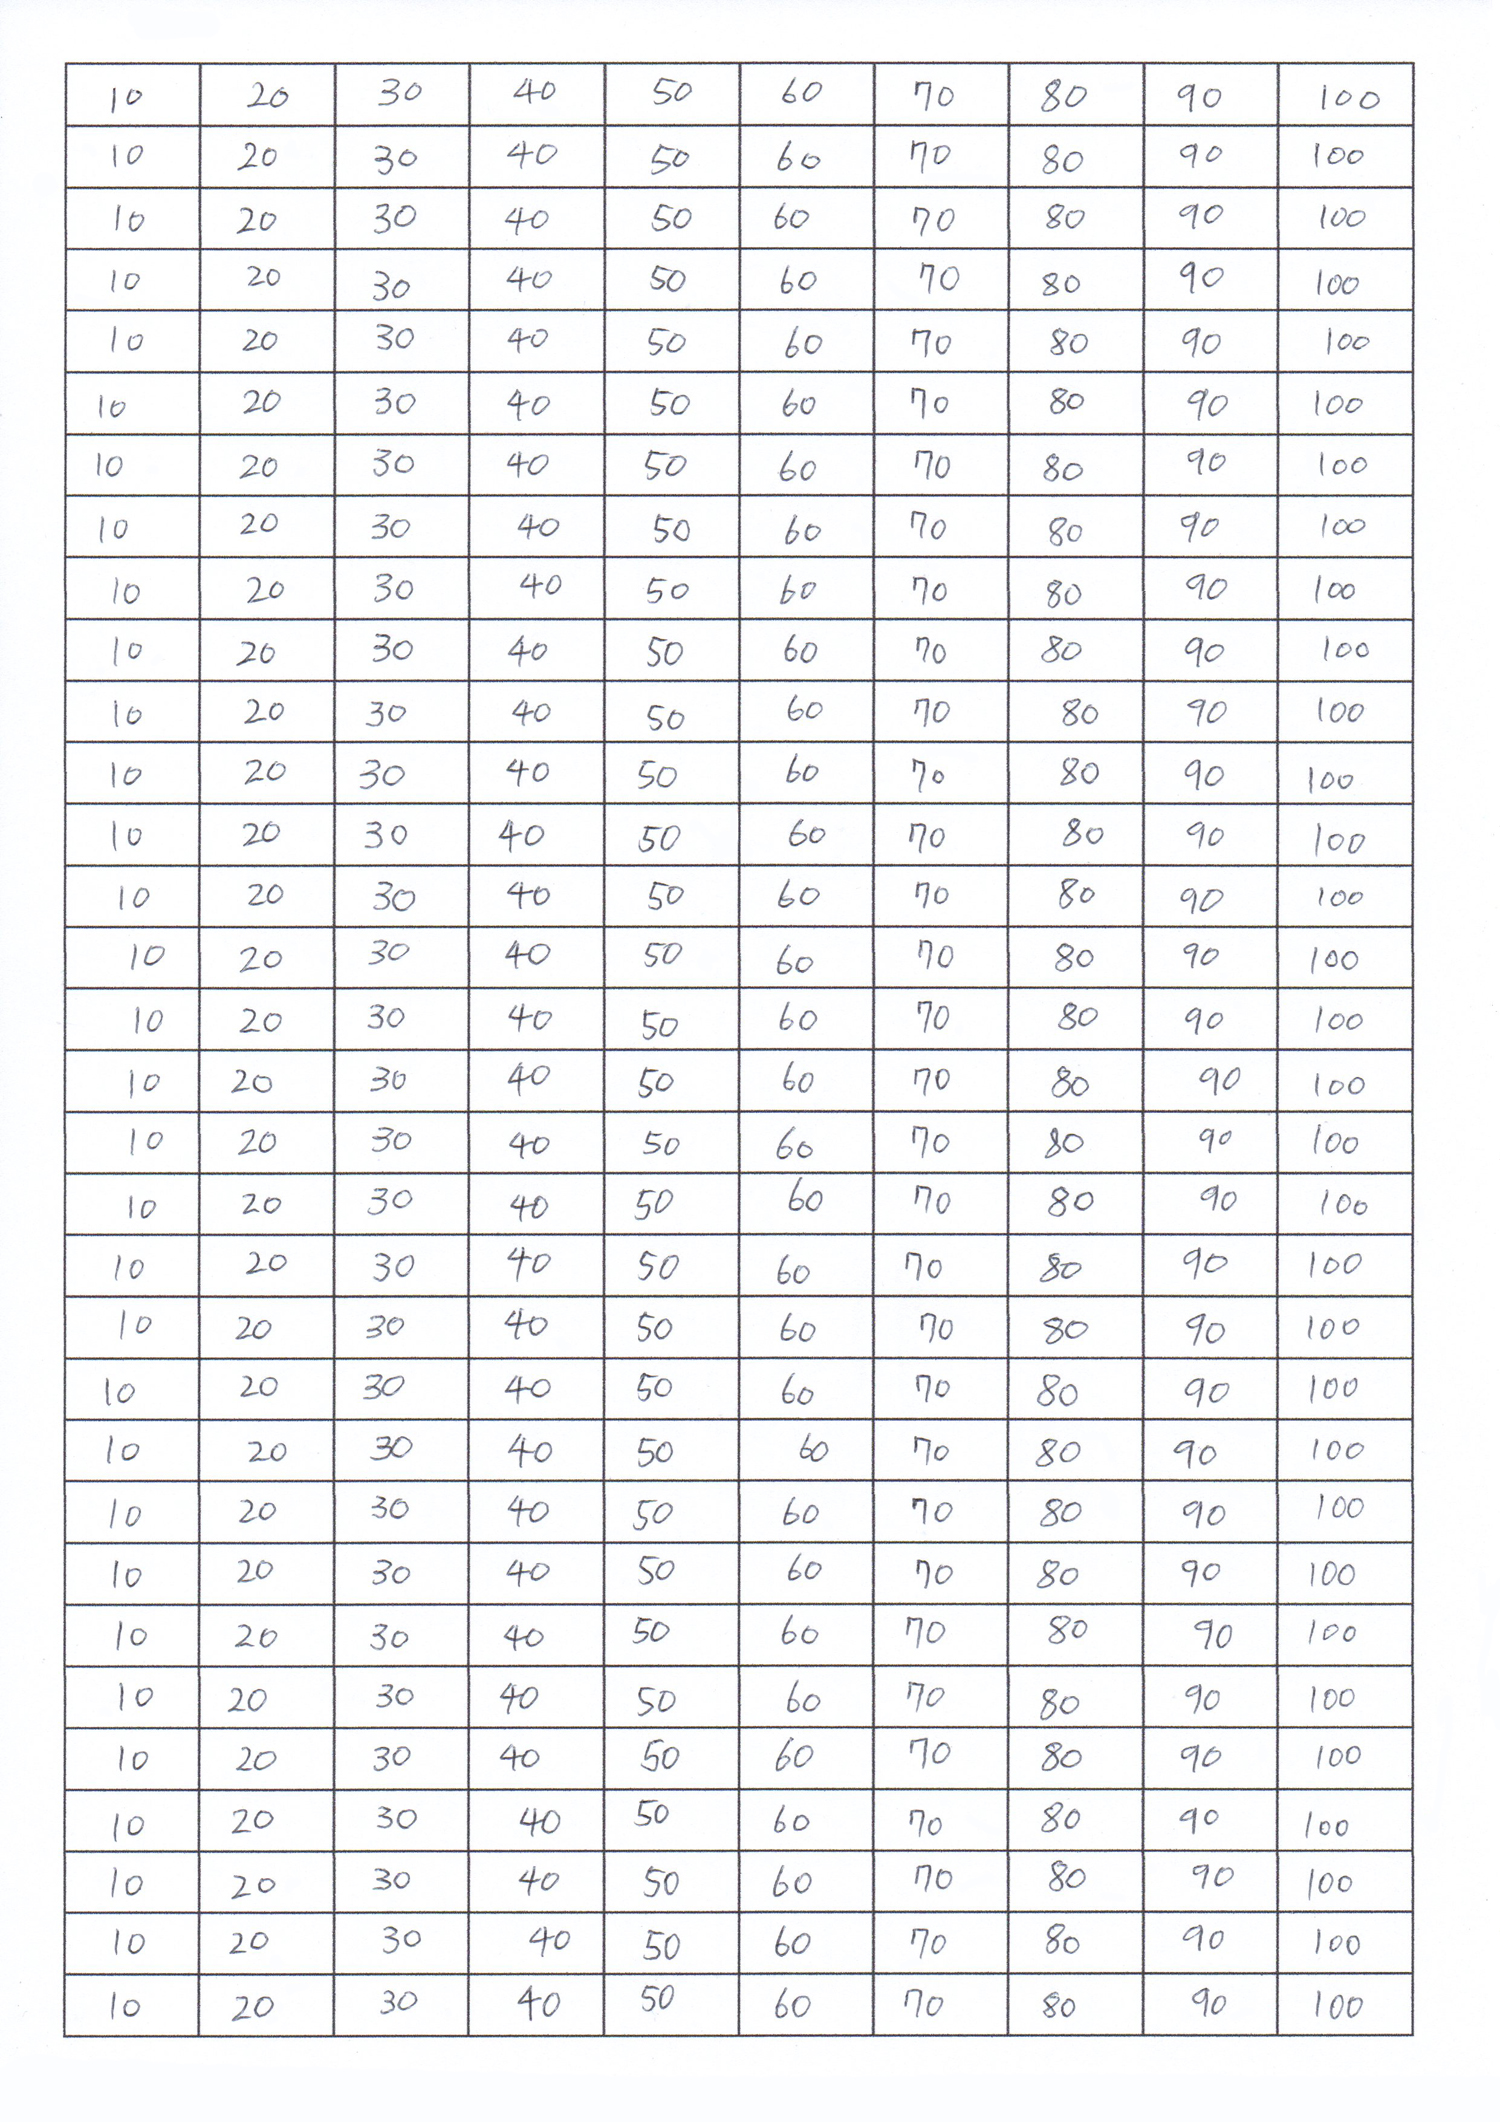 10 20 30 40 50 60 70 80 90 100
10 20 30 40 50 60 70 80 90 100
10 20 30 40 50 60 70 80 90 100
10 20 30 40 50 60 70 80 90 100
10 20 30 40 50 60 70 80 90 100
10 20 30 40 50 60 70 80 90 100
10 20 30 40 50 60 70 80 90 100
10 20 30 40 50 60 70 80 90 100
10 20 30 40 50 60 70 80 90 100
10 20 30 40 50 60 70 80 90 100
10 20 30 40 50 60 70 80 90 100
10 20 30 40 50 60 70 80 90 100
10 20 30 40 50 60 70 80 90 100
10 20 30 40 50 60 70 80 90 100
10 20 30 40 50 60 70 80 90 100
10 20 30 40 50 60 70 80 90 100
10 20 30 40 50 60 70 80 90 100
10 20 30 40 50 60 70 80 90 100
10 20 30 40 50 60 70 80 90 100
10 20 30 40 50 60 70 80 90 100
10 20 30 40 50 60 70 80 90 100
10 20 30 40 50 60 70 80 90 100
10 20 30 40 50 60 70 80 90 100
10 20 30 40 50 60 70 80 90 100
10 20 30 40 50 60 70 80 90 100
10 20 30 40 50 60 70 80 90 100
10 20 30 40 50 60 70 80 90 100
10 20 30 40 50 60 70 80 90 100
10 20 30 40 50 60 70 80 90 100
10 20 30 40 50 60 70 80 90 100
10 20 30 40 50 60 70 80 90 100
10 20 30 40 50 60 70 80 90 100